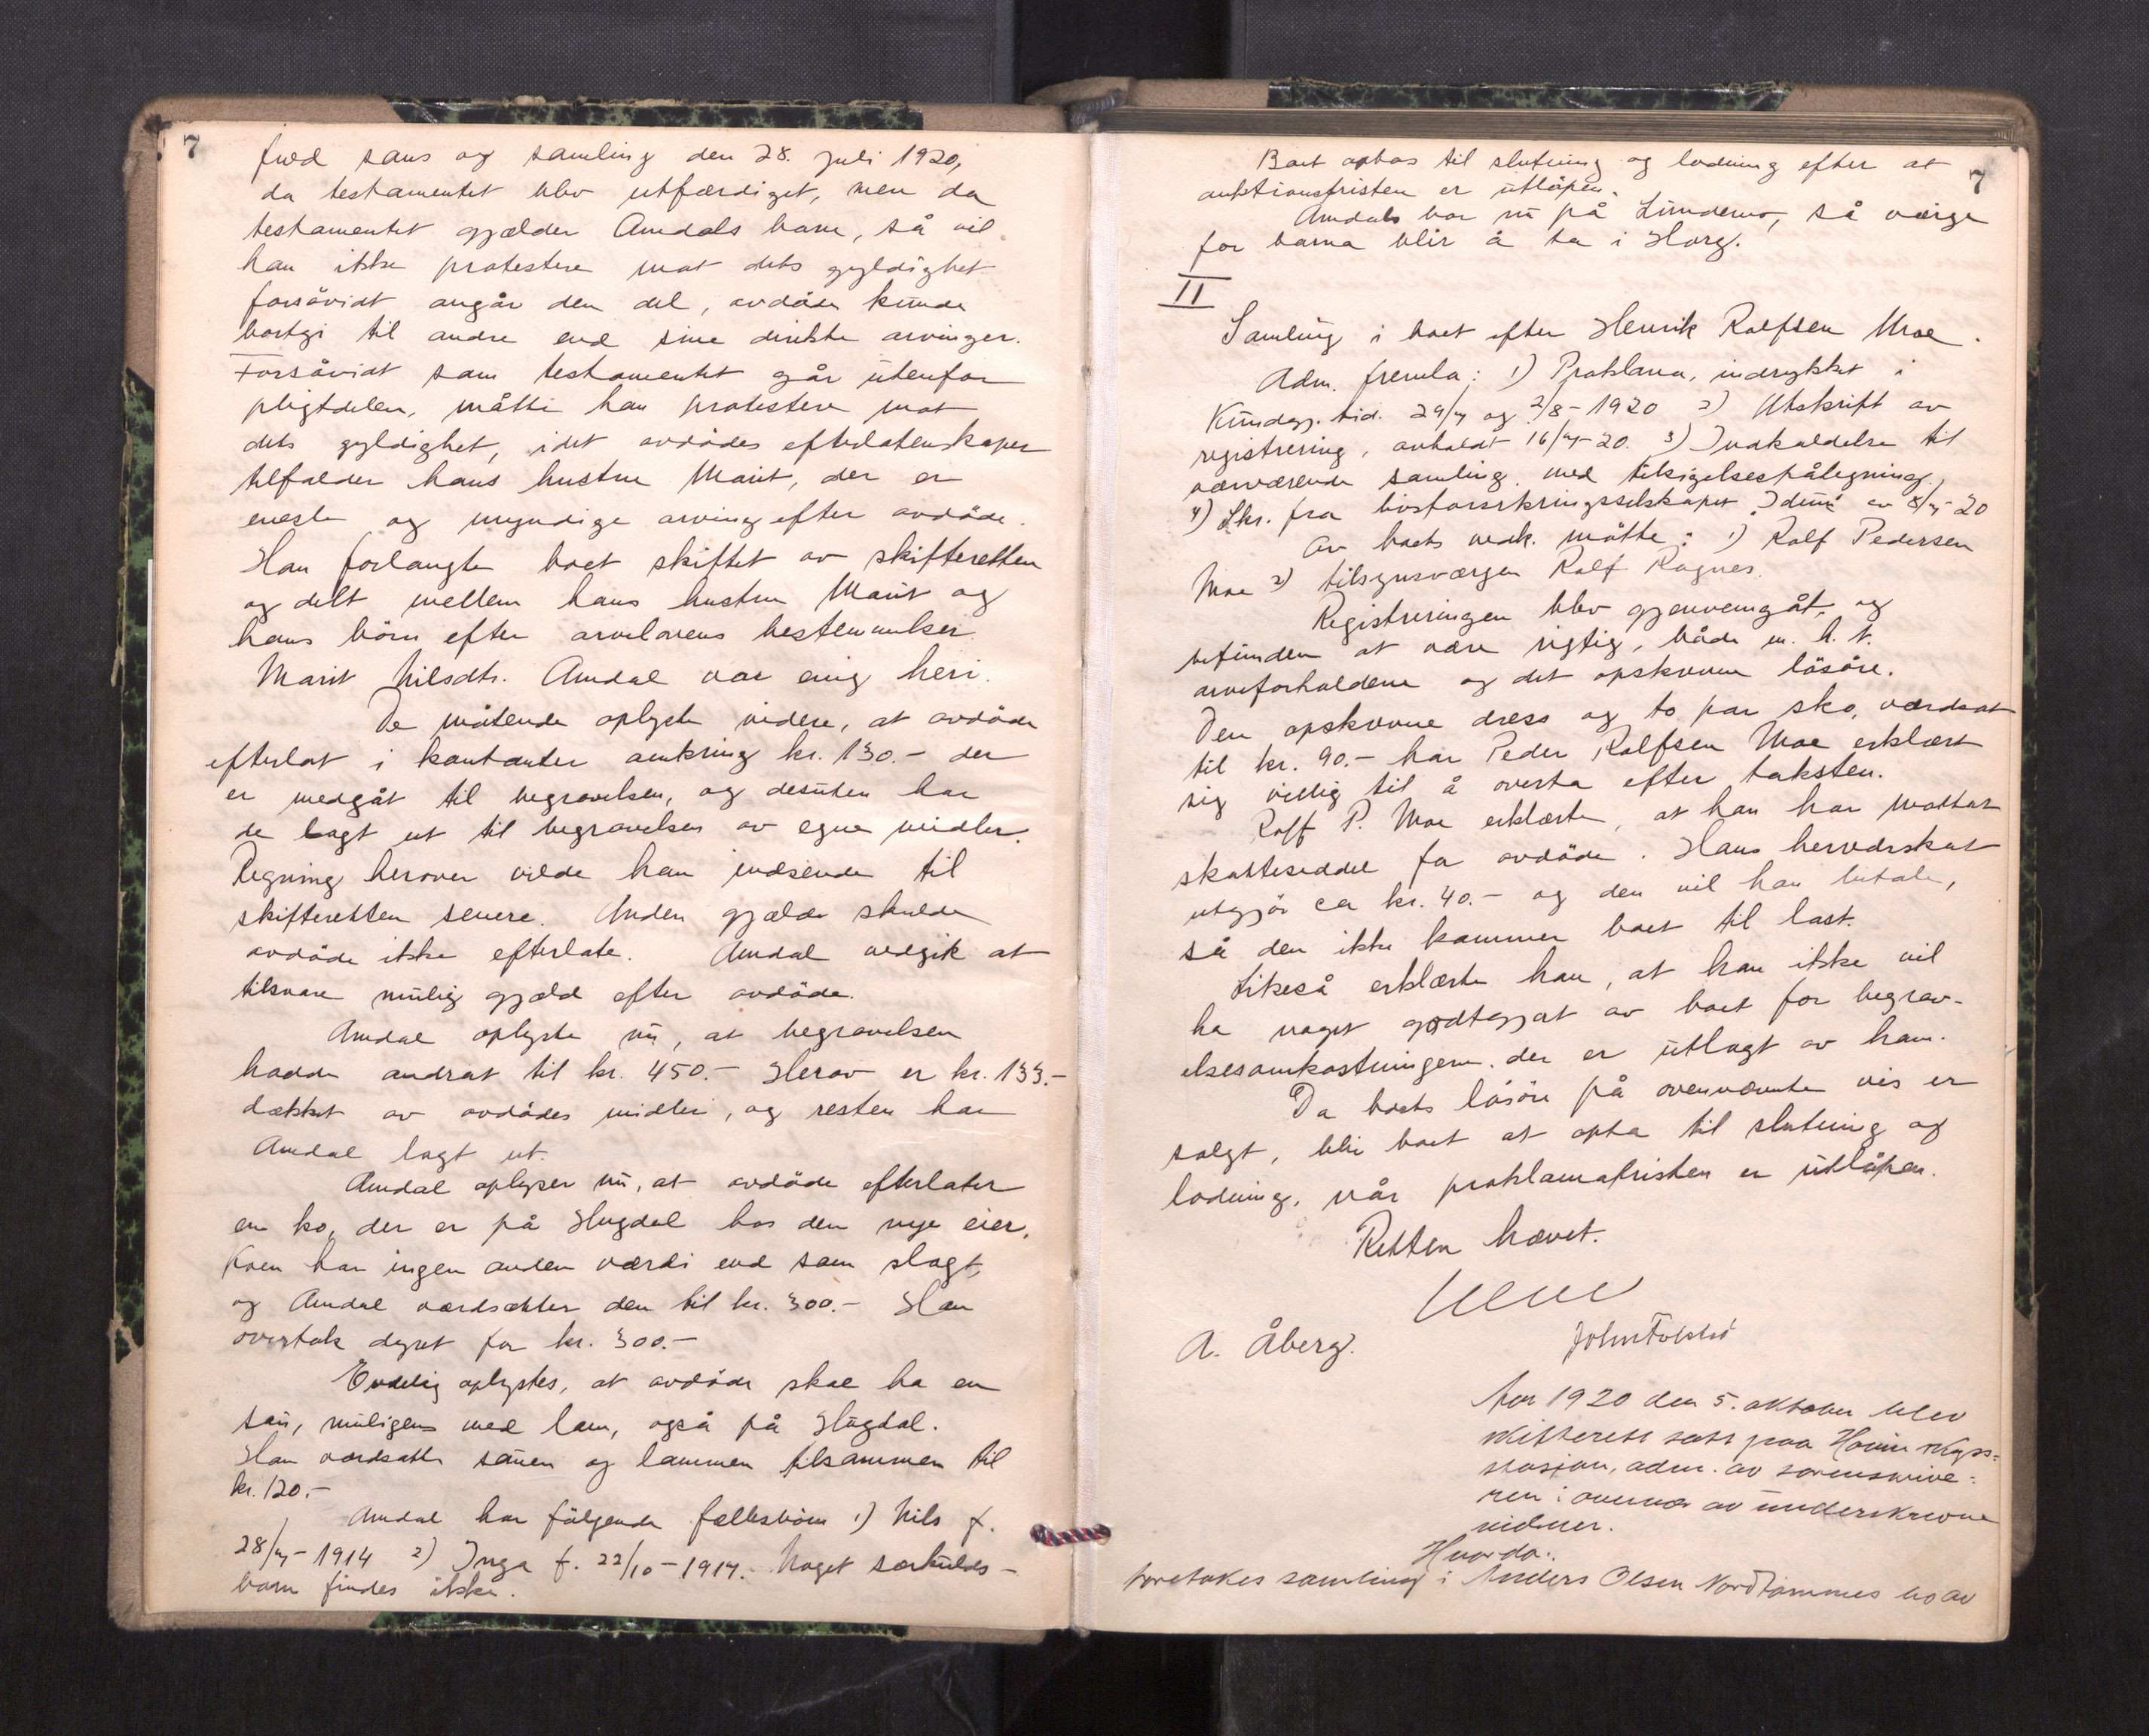 7
sans og samling den 28. juli 1920,
da testamentet blev utfærdiget, men da
testamentet gjælder Amdals barn, så vil
han ikke protestere mot dets gyldighet
forsåvidt angår den del, avdöde kunde
bortgi til andre end sine direkte arvinger.
Forsåvidt som testamentet går utenfor
pligtdelen, måtte han protestere mot
dets gyldighet, idet avdödes efterlatenskaper
tilfalder hans hustru Marit, der er
eneste og myndige arving efter avdöde.
Han forlangte boet skiftet av skifteretten
og delt mellem hans hustru Marit og
hans börn efter arvelovens bestemmelser.
Marit Nilsdtr. Amdal var enig heri.
De mötende oplyste videre, at avdöde
efterlot i kontanter omkring kr. 130.- der
er medgåt til begravelsen, og desuten har
de lagt ut til begravelsen av egne midler.
Regning herover vilde han indsende til
skifteretten senere. Anden gjæld skulde
avdöde ikke efterlate. Amdal vedgik at
tilsvare mulig gjæld efter avdöde.
Amdal oplyste nu, at begravelsen
hadde andrat til kr. 450.- Herav er kr. 133.-
dækket av avdödes midler, og resten har
Amdal lagt ut.
Amdal oplyser nu, at avdöde efterlater
en ko, der er på Hugdal hos den nye eier.
Koen har ingen anden værdi end som slagt,
og Amdal værdsætter den til kr. 300.- Han
overtok dyret for kr. 300.-
Endelig oplystes, at avdöde skal ha en
sau, muligens med lam, også på Hugdal.
Han værdsatte sauen og lammen tilsammen til
kr. 120.-
Amdal har fölgende fællesbörn 1) Nils f.
28/4-1914 2) Inga f. 22/10-1917. Noget særkulds-
barn findes ikke.
7
Boet optas til slutning og lodning efter at
auktionsfristen er utlöpen.
Amdals bor nu på Lundemo, så værge
for barna blir å ta i Horg.
II
Samling i boet efter Henrik Rolfsen Moe.
Adm. fremla: 1) Proklama, indrykket i
Kundgj. tid. 29/7 og 2/8-1920 2) Utskrift av
registrering, avholdt 16/7-20. 3) Indkaldelse til
nærværende samling med tilsigelsespåtegning.
4) Skr. fra livsforsikringsselskapet Idun av 8/7-20
Av boets vedk. mötte: 1) Rolf Pedersen
Moe 2) tilsynsværgen Rolf Rognes.
Registreringen blev gjennemgåt, og
befunden at være rigtig, både m. h. t.
arveforholdene og det opskrevne lösöre.
Den opskrevne dress og to par sko, værdsat
til kr. 90.- har Peder Rolfsen Moe erklært
sig villig til å overta efter taksten.
Rolf P. Moe erklærte, at han har mottat
skatteseddel for avdöde. Hans herredsskat
utgjör ca kr. 40.- og den vil han betale,
så den ikke kommer boet til last.
Likeså erklærte han, at han ikke vil
ha noget godtgjort av boet for begrav-
elsesomkostningene, der er utlagt av ham.
Da boets lösöre på ovennævnte vis er
solgt, blir boet at opta til slutning og
lodning, når proklamafristen er utlöpen.
Retten hævet.
A. Åberg.
Aar 1920 den 5. oktober blev
skifterett satt paa Hovin skyss-
stasjon, adm. av sorenskrive-
ren i overvær av underskrevne
vidner.
Hvorda:
Foretokes samling i Anders Olsen Nordtømmes bo av